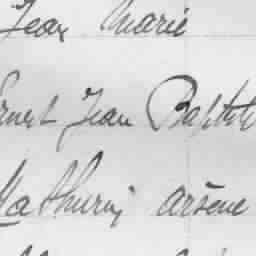 Jean Marie
Ernest Jean Baptiste
Mathurin arsène